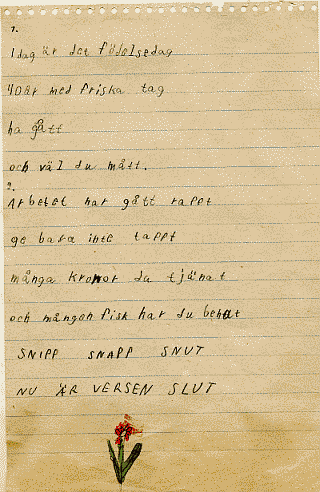 1.
Idag är det födelsedag
40 år med friska tag
ha gått
och väl du mått.
2.
Arbetet har gått rappt
ge bara inte tappt
många kronor du tjänat
och mången fisk har du
SNIPP SNAPP SNUT
NU ÄR VERSEN SLUT